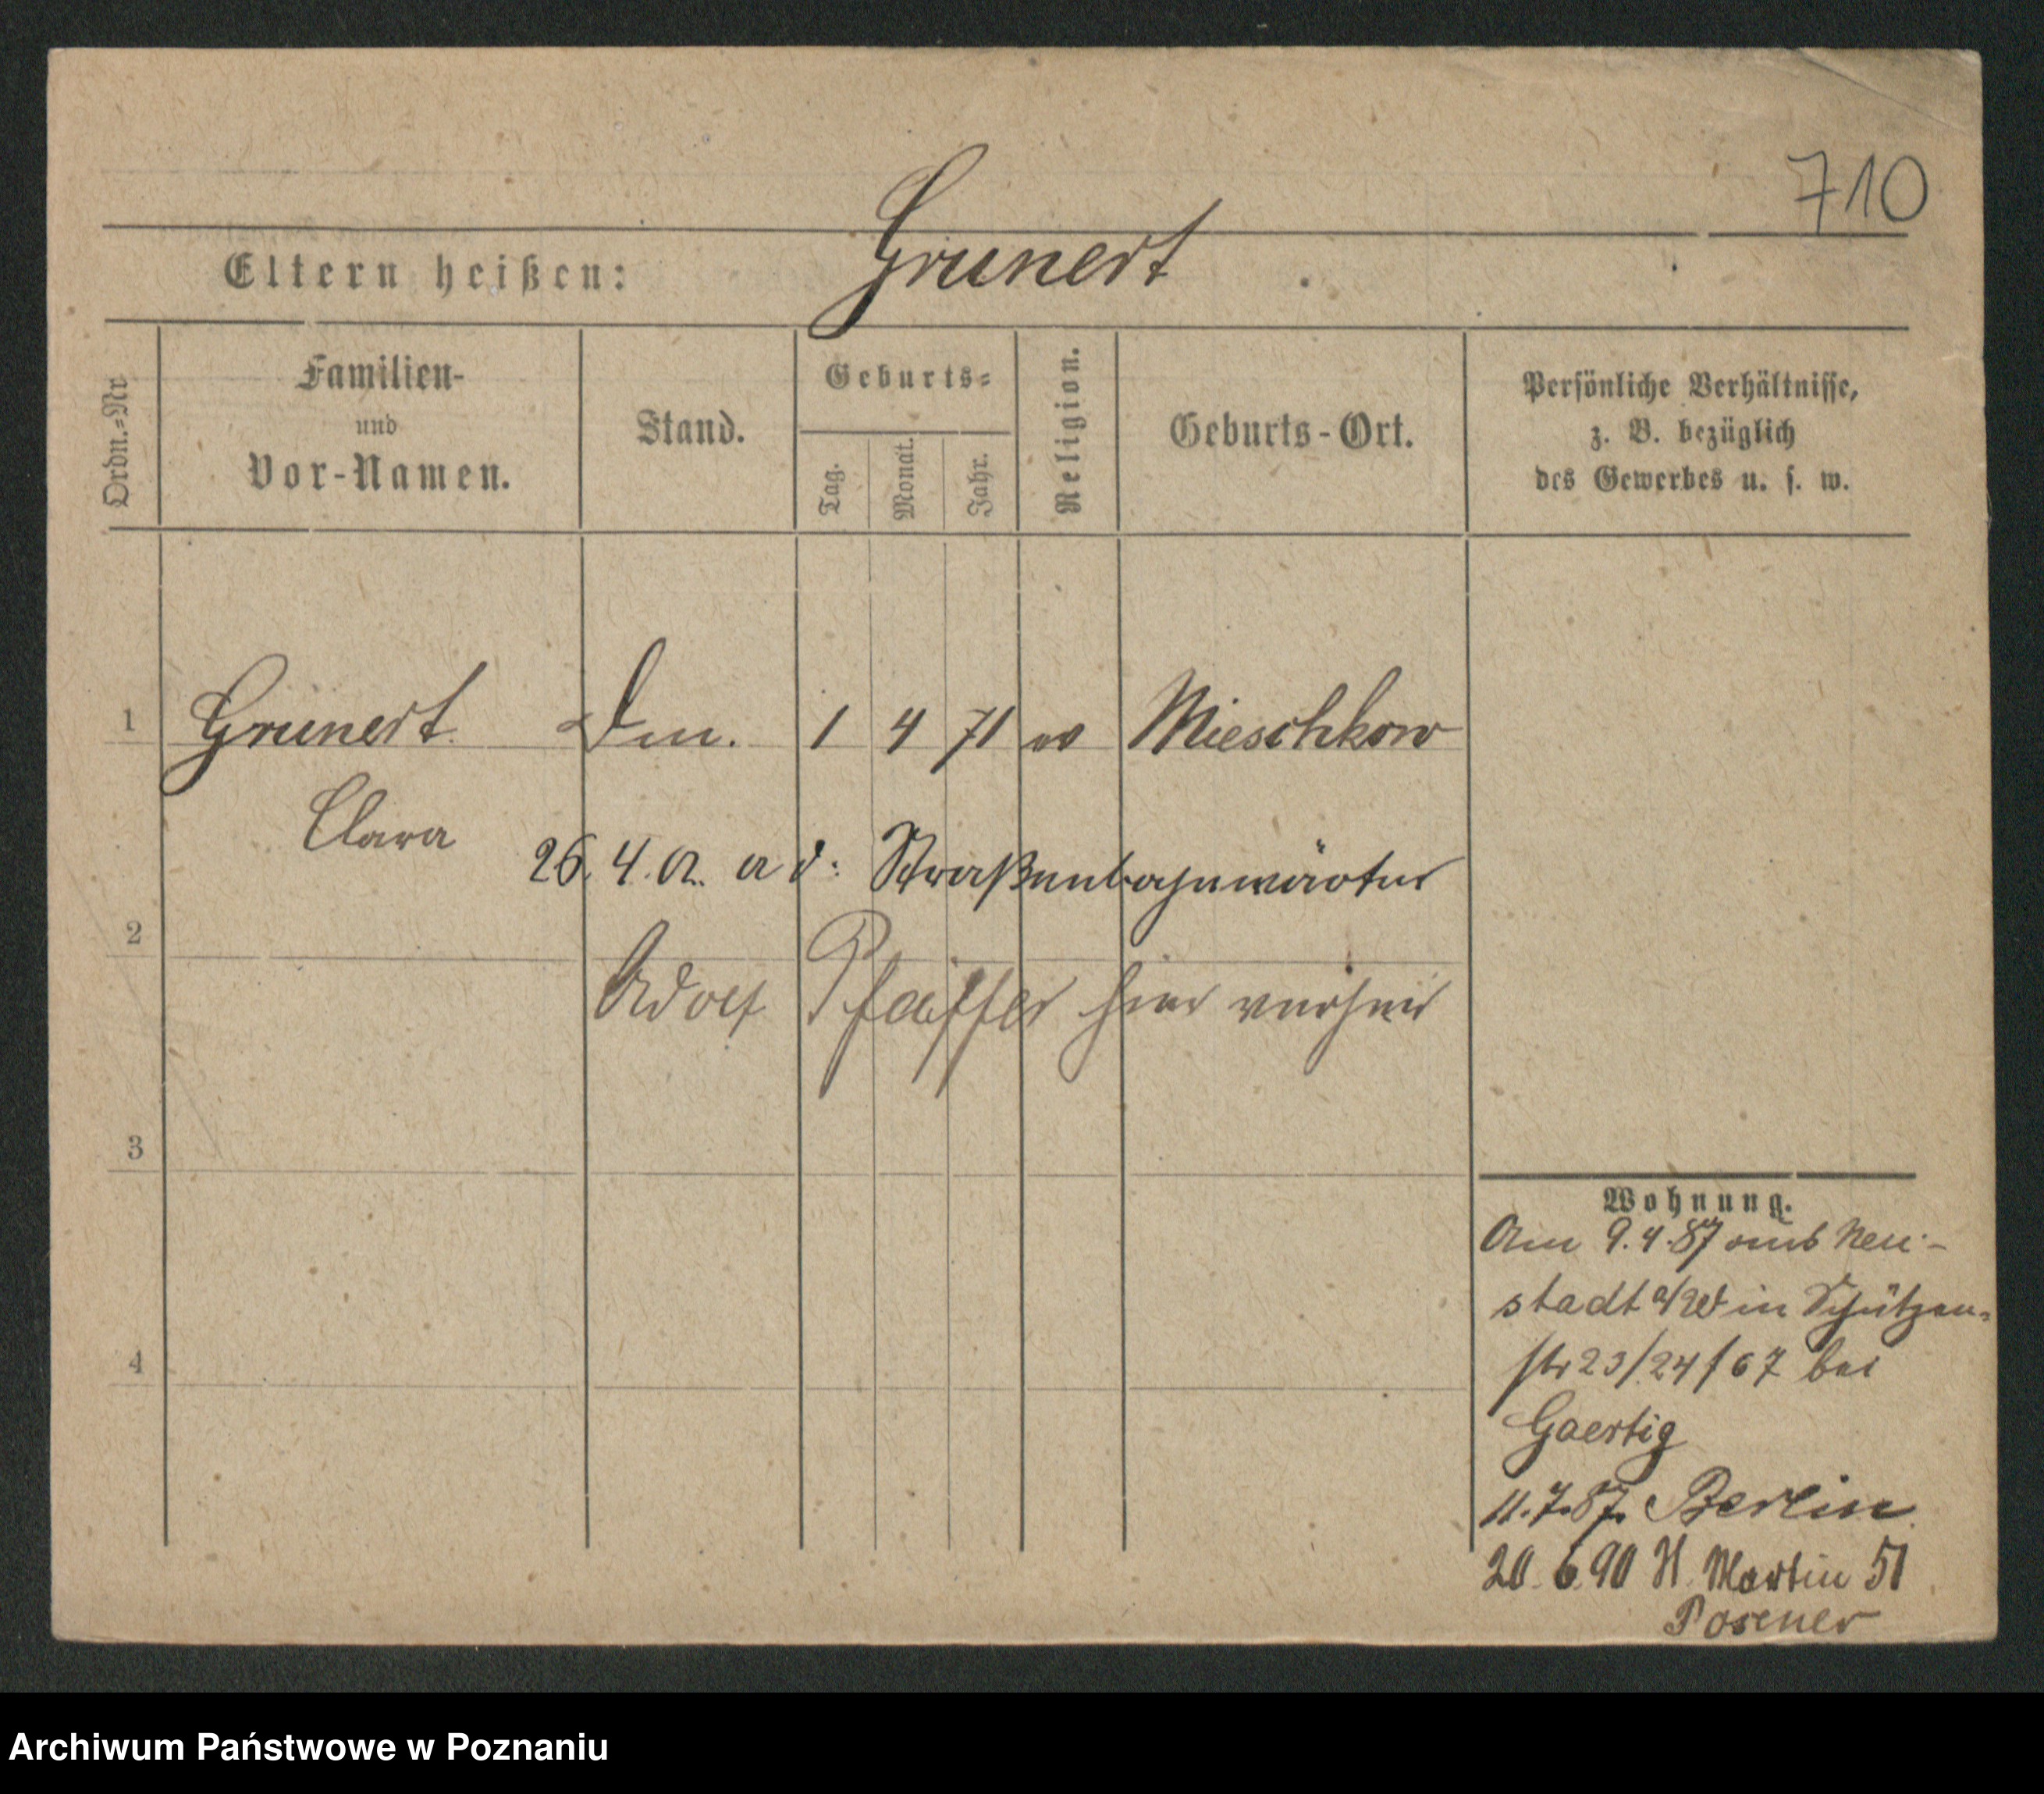 710
Grunert
Eltern heißen:
Ordn.-Nr
Familien-
und
Vor-Namen.
Stand.
Geburts-
Tag.
Monat.
Jahr.
Religion.
Geburts-Ort.
Persönliche Verhältnisse,
z. B. bezüglich
des Gewerbes u. s. w.
1 Grunert 1 4 71 Mieschkow
Clara
26. 4. a d. Straßenbahnwärter
2
Adolf Pfeiffer hier verheir
3
4
Wohnung.
Am 9.4.87 aus Neu-
stadt a/W in Schützen-
str 23/24 f 67 bei
Gaertig
11.7.87. Berlin
20.6.90 Martin 51
Posener
Archiwum Państwowe w Poznaniu